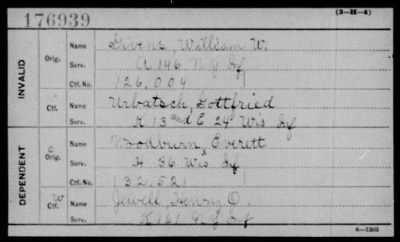 176939
(3—H—4)
INVALID
Orig.
Name Givens, William W.
Serv. A 146 N.Y. Inf
Ctf. No. 126,004
Ctf.
Name Urbatsch, Gottfried
Serv. K 13 and E 24 Wis Inf
DEPENDENT
C
Orig.
Name Woodburn, Everett
Serv. H 36 Wis Inf
Ctf. No. 132,521
W
Ctf.
Name Jewell, Henry O.
Serv. K 161 N.Y. Inf
6—1303